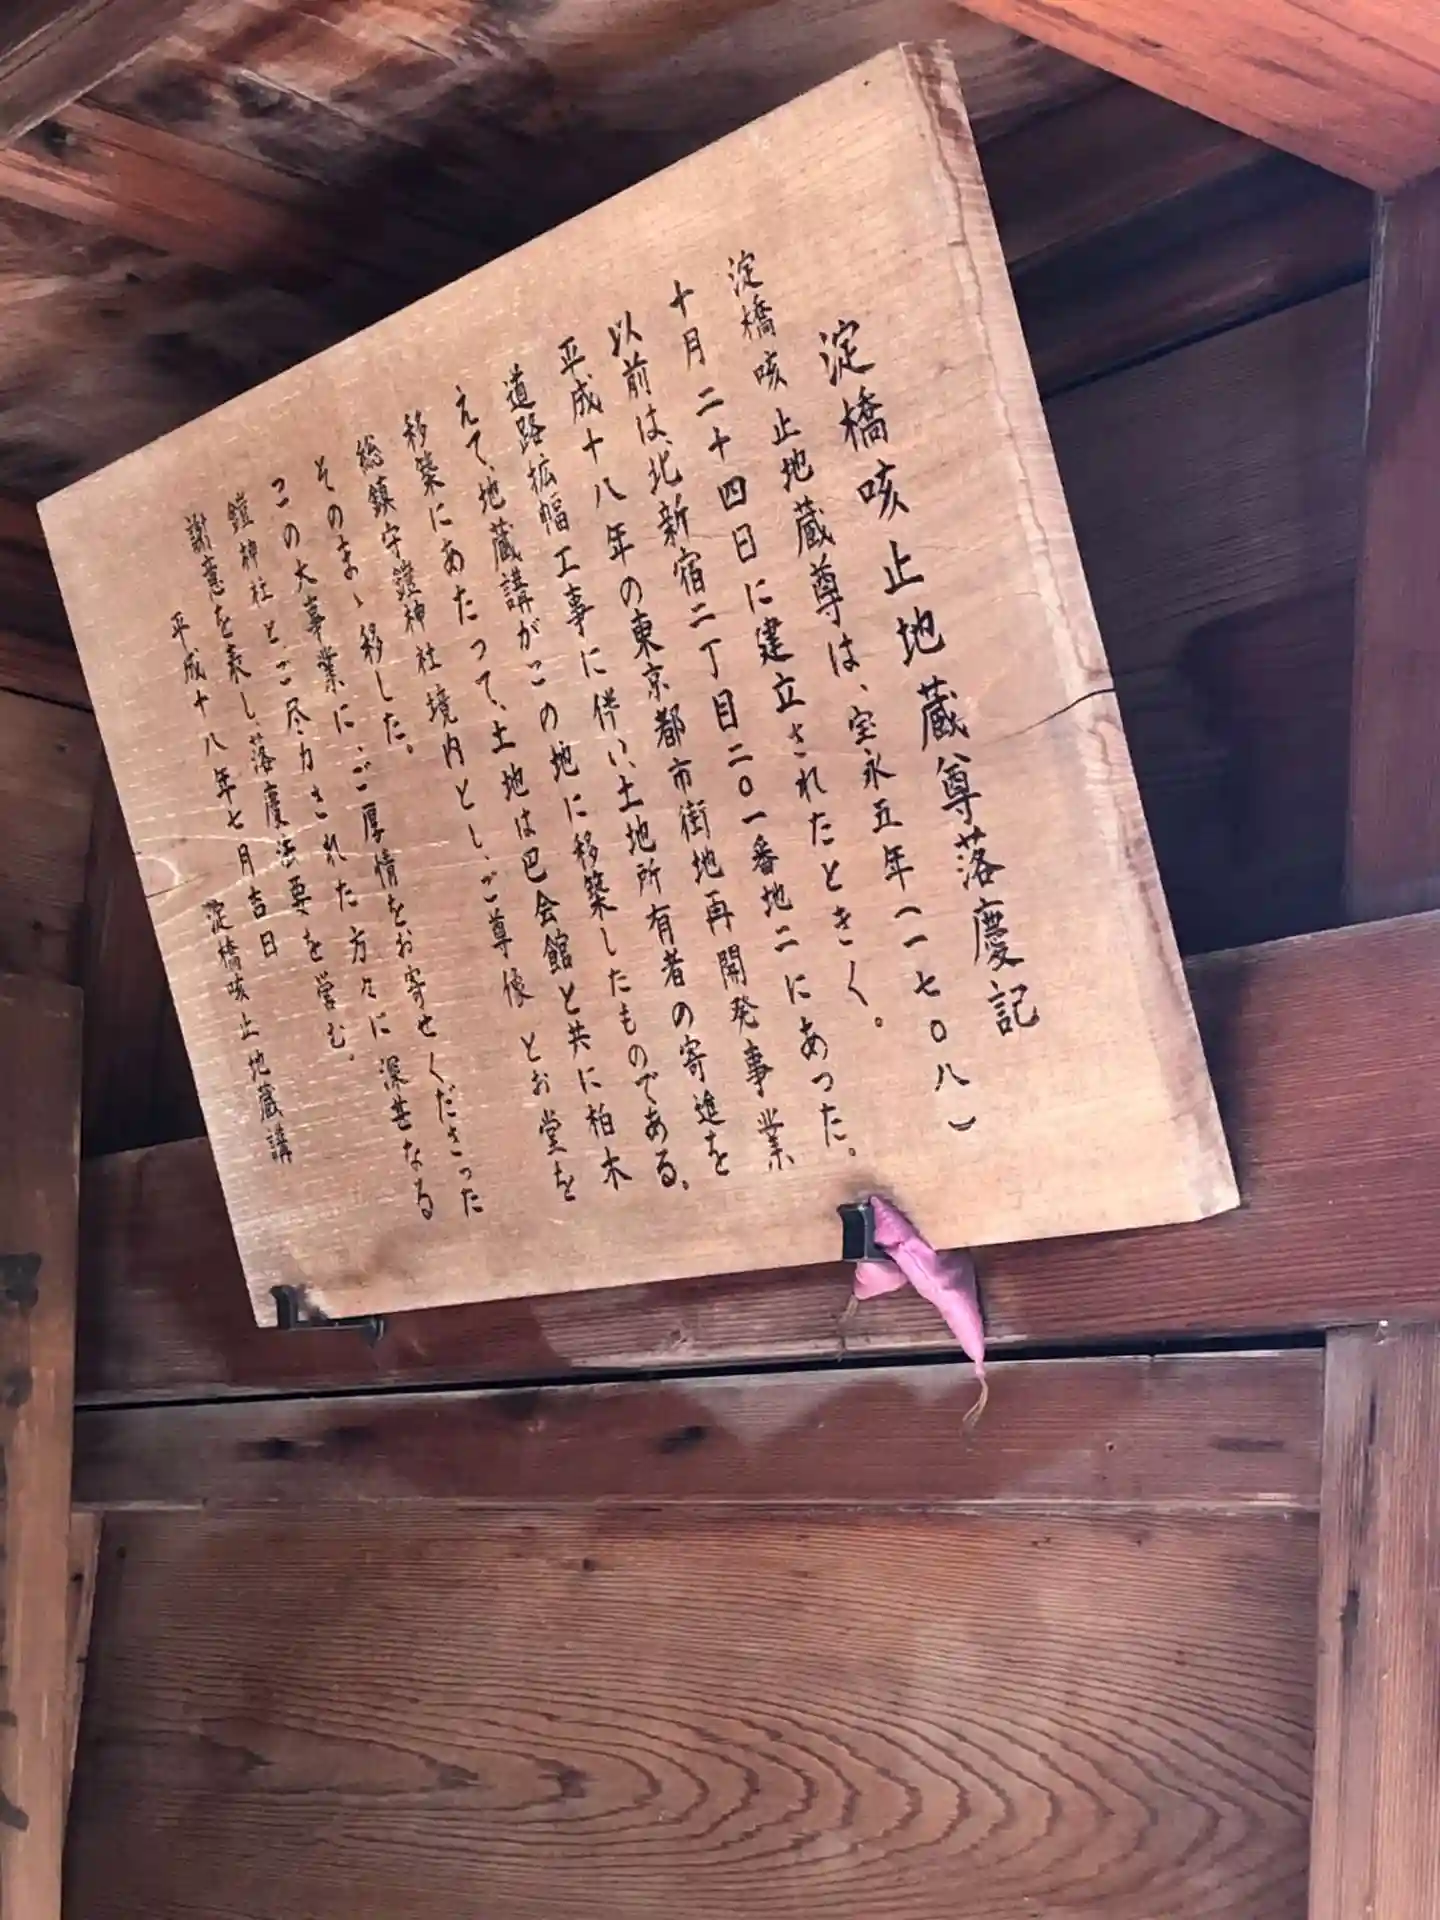 淀橋咳止地蔵尊落慶記
淀橋咳止地蔵尊は、宝永五年(一七〇八)
十月二十四日に建立されたときく。
以前は、北新宿二丁目二〇一番地二にあった。
平成十八年の東京都市街地再開発事業
道路拡幅工事に伴い、土地所有者の寄進を
えて、地蔵講がこの地に移築したものである。
移築にあたって、土地は巴会館と共に柏木
総鎮守鎧神社境内とし、ご尊像とお堂を
そのまゝ移した。
この大事業に、ご厚情をお寄せくださった
鎧神社と、ご尽力された方々に深甚なる
謝意を表し、落慶法要を営む。
平成十八年七月吉日
淀橋咳止地蔵講